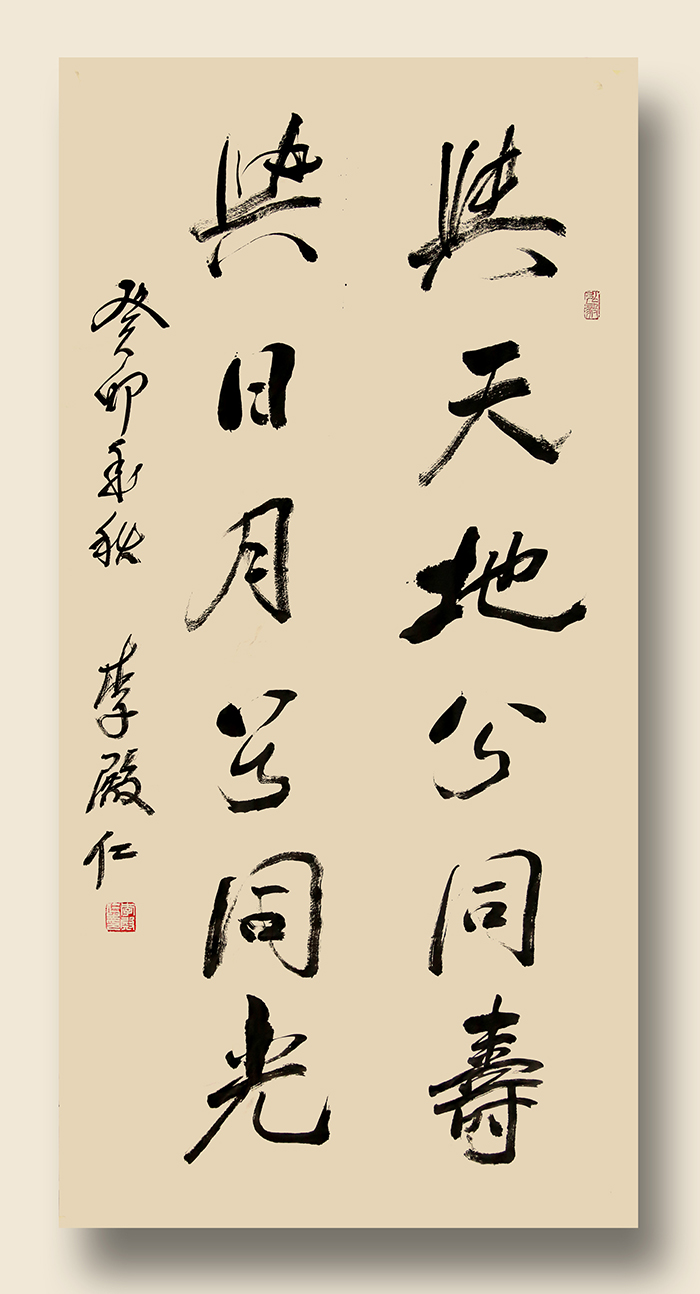 與天地兮同壽
與日月兮同光
癸卯年秋 李殿仁